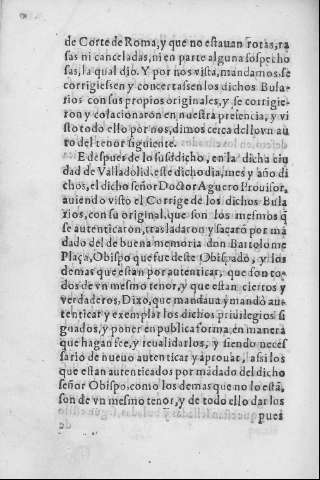 de Corte de Roma, y que no estauan rotas, ra
sas ni canceladas, ni en parte alguna sospecho
sas, la qual dio. Y por nos vista, mandamos, se
corrigiessen y concertassen los dichos Bula-
rios con sus propios originales, y se corrigie-
ron y colacionaron en nuestra presencia, y vi
sto todo ello por nos, dimos cerca dello vn au
to del tenor siguiente.
E despues de lo susodicho, en la dicha ciu
dad de Valladolid, este dicho dia, mes y año di
chos, el dicho señor Doctor Aguero Prouisor,
auiendo visto el Corrige de los dichos Bula
rios, con su original, que son los mesmos q̃
se autenticarõ, trasladaron y sacarõ por mã
dado del de buena memoria don Bartolome
Plaça, Obispo que fue deste Obispado, y los
demas que estan por autenticar, que son to-
dos de vn mesmo tenor, y que estan ciertos y
verdaderos, Dixo, que mandaua y mandò au-
tenticar y exemplar los dichos priuilegios si
guados, y poner en publica forma, en manera
que hagan fee, y reualidarlos, y siendo neces
sario de nueuo autenticar y aprouar, assi los
que estan autenticados por mãdado del dicho
señor Obispo, como los demas que no lo estã,
son de vn mesmo tenor, y de todo ello dar los
pues